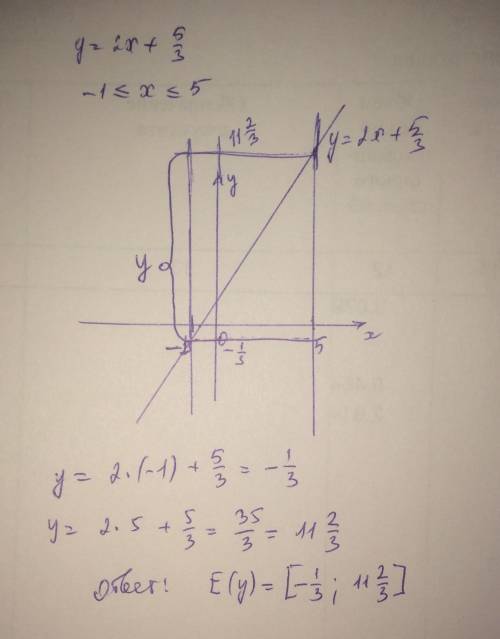 y = 2x + 5/3
-1 ≤ x ≤ 5
11 2/3
y = 2x + 5/3
y
y
x
-1
0
-1/3
5
y = 2·(-1) + 5/3 = -1/3
y = 2·5 + 5/3 = 35/3 = 11 2/3
Ответ: E(y) = [-1/3; 11 2/3]